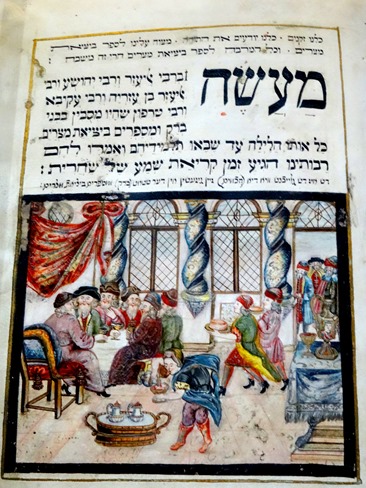 כלנו זקנים . כלנו יודעים את התורה . מצוה עלינו לספר ביציאת
מצרים . וכל המרבה לספר ביציאת מצרים הרי זה משובח :
מעשה
ברבי אליעזר ורבי יהושע ורבי
אלעזר בן עזריה ורבי עקיבא
ורבי טרפון שהיו מסבין בבני
ברק ומספרים ביציאת מצרים
כל אותו הלילה עד שבאו תלמידיהם ואמרו להם
רבותינו הגיע זמן קריאת שמע של שחרית :